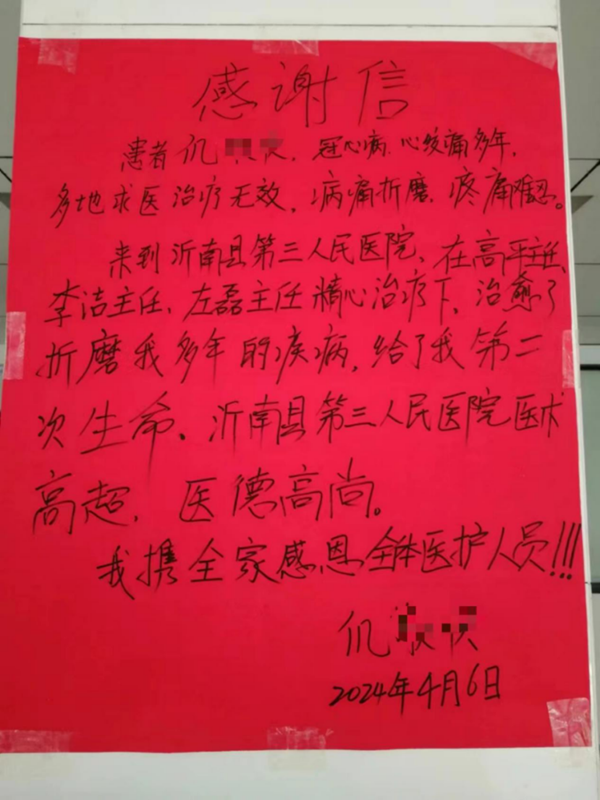 感谢信
患者仉 , 冠心病,心绞痛多年,
多地求医治疗无效,病痛折磨,疼痛难忍。
来到沂南县第三人民医院,在高平主任、
李洁主任、左磊主任精心治疗下,治愈了
折磨我多年的疾病,给了我第二
次生命、沂南县第三人民医院医术
高超,医德高尚。
我携全家感恩全体医护人员!!!
仉
2024年4月6日